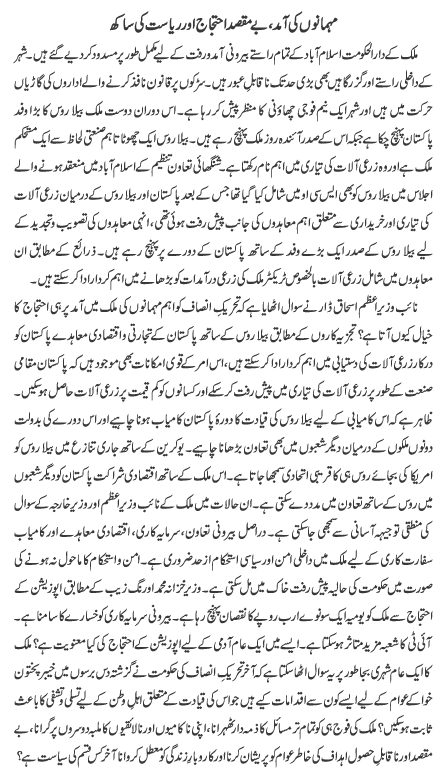 مہمانوں کی آمد، بے مقصد احتجاج اور ریاست کی ساکھ
ملک کے دارالحکومت اسلام آباد کے تمام راستے بیرونی آمد و رفت کے لیے مکمل طور پر مسدود کر دیے گئے ہیں۔ شہر
کے داخلی راستے اور گزرگاہیں بھی بڑی حد تک ناقابل عبور ہیں۔ سڑکوں پر قانون نافذ کرنے والے اداروں کی گاڑیاں
حرکت میں ہیں اور شہر ایک نیم فوجی چھاؤنی کا منظر پیش کر رہا ہے۔ اس دوران دوست ملک بیلا روس کا بڑا وفد
پاکستان پہنچ چکا ہے جبکہ اس کے صدر آئندہ روز ملک پہنچ رہے ہیں۔ بیلا روس ایک چھوٹا تاہم صنعتی لحاظ سے ایک مستحکم
ملک ہے اور وہ زرعی آلات کی تیاری میں اہم نام رکھتا ہے۔ شنگھائی تعاون تنظیم کے اسلام آباد میں منعقد ہونے والے
اجلاس میں بیلا روس کو بھی ایس سی او میں شامل کیا گیا تھا جس کے بعد پاکستان اور بیلا روس کے درمیان زرعی آلات
کی تیاری اور خریداری سے متعلق اہم معاہدوں کی جانب پیش رفت ہوئی تھی، انہی معاہدوں کی تصویب و تجدید کے
لیے بیلا روس کے صدر ایک بڑے وفد کے ساتھ پاکستان کے دورے پر پہنچ رہے ہیں۔ ذرائع کے مطابق ان
معاہدوں میں شامل زرعی آلات بالخصوص ٹریکٹر ملک کی زرعی درآمدات کو بڑھانے میں اہم کردار ادا کر سکتے ہیں۔
نائب وزیر اعظم اسحاق ڈار نے سوال اٹھایا ہے کہ تحریک انصاف کو اہم مہمانوں کی ملک میں آمد پر ہی احتجاج کا
خیال کیوں آتا ہے؟ تجزیہ کاروں کے مطابق بیلا روس کے ساتھ پاکستان کے تجارتی و اقتصادی معاہدے پاکستان کو
درکار زرعی آلات کی دستیابی میں اہم کردار ادا کر سکتے ہیں، اس امر کے قوی امکانات بھی موجود ہیں کہ پاکستان مقامی
صنعت کے طور پر زرعی آلات کی تیاری میں پیش رفت کر سکے اور کسانوں کو کم قیمت پر زرعی آلات حاصل ہو سکیں۔
ظاہر ہے کہ اس کامیابی کے لیے بیلا روس کی قیادت کا دورۂ پاکستان کامیاب ہونا چاہیے اور اس دورے کی بدولت
دونوں ملکوں کے درمیان دیگر شعبوں میں بھی تعاون بڑھانا چاہیے۔ یوکرین کے ساتھ جاری تنازع میں بیلا روس کو
امریکا کی بجائے روس ہی کا قریبی اتحادی سمجھا جاتا ہے۔ اس ملک کے ساتھ اقتصادی شراکت پاکستان کو دیگر شعبوں
میں روس کے ساتھ تعاون میں مدد دے سکتی ہے۔ ان حالات میں ملک کے نائب وزیر اعظم اور وزیر خارجہ کے سوال
کی منطقی توجیہ آسانی سے سمجھی جا سکتی ہے۔ دراصل بیرونی تعاون، سرمایہ کاری، اقتصادی معاہدے اور کامیاب
سفارت کاری کے لیے ملک میں داخلی امن اور سیاسی استحکام از حد ضروری ہے۔ امن و استحکام کا ماحول نہ ہونے کی
صورت میں حکومت کی حالیہ پیش رفت خاک میں مل سکتی ہے۔ وزیر خزانہ محمد اورنگ زیب کے مطابق اپوزیشن کے
احتجاج سے ملک کو یومیہ ایک سو نوے ارب روپے کا نقصان پہنچ رہا ہے۔ بیرونی سرمایہ کاری کو خسارے کا سامنا ہے۔
آئی ٹی کا شعبہ مزید متاثر ہو سکتا ہے۔ ایسے میں ایک عام آدمی کے لیے اپوزیشن کے احتجاج کی کیا معنویت ہے؟ ملک
کا ایک عام شہری بجا طور پر یہ سوال اٹھا سکتا ہے کہ آخر تحریک انصاف کی حکومت نے گزشتہ دس برسوں میں خیبر پختون
خوا کے عوام کے لیے ایسے کون سے اقدامات کیے ہیں جو اس کی قیادت کے متعلق اہل وطن کے لیے تسلی و تشفی کا باعث
ثابت ہو سکیں؟ ملک کی فوج ہی کو تمام تر مسائل کا ذمہ دار ٹھہرانا، اپنی ناکامیوں اور نالائقیوں کا ملبہ دوسروں پر گرانا، بے
مقصد اور ناقابل حصول اہداف کی خاطر عوام کو پریشان کرنا اور کاروبار زندگی کو معطل کروانا آخر کس قسم کی سیاست ہے؟